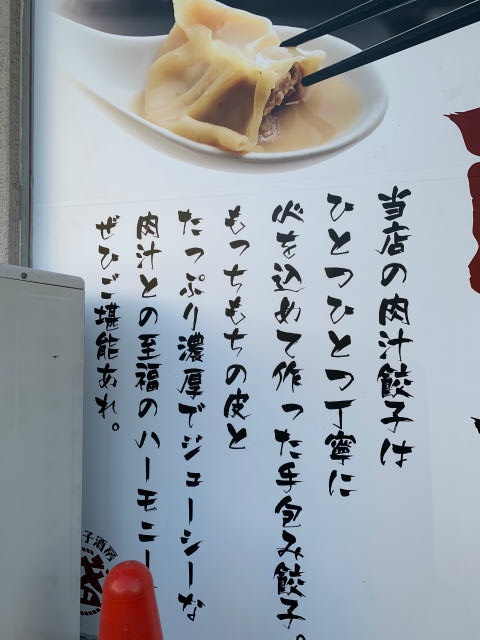 当店の肉汁餃子は
ひとつひとつ丁寧に
心を込めて作った手包み餃子。
もっちもちの皮と
たっぷり濃厚でジューシーな
肉汁との至福のハーモニー
ぜひご堪能あれ。
子酒房